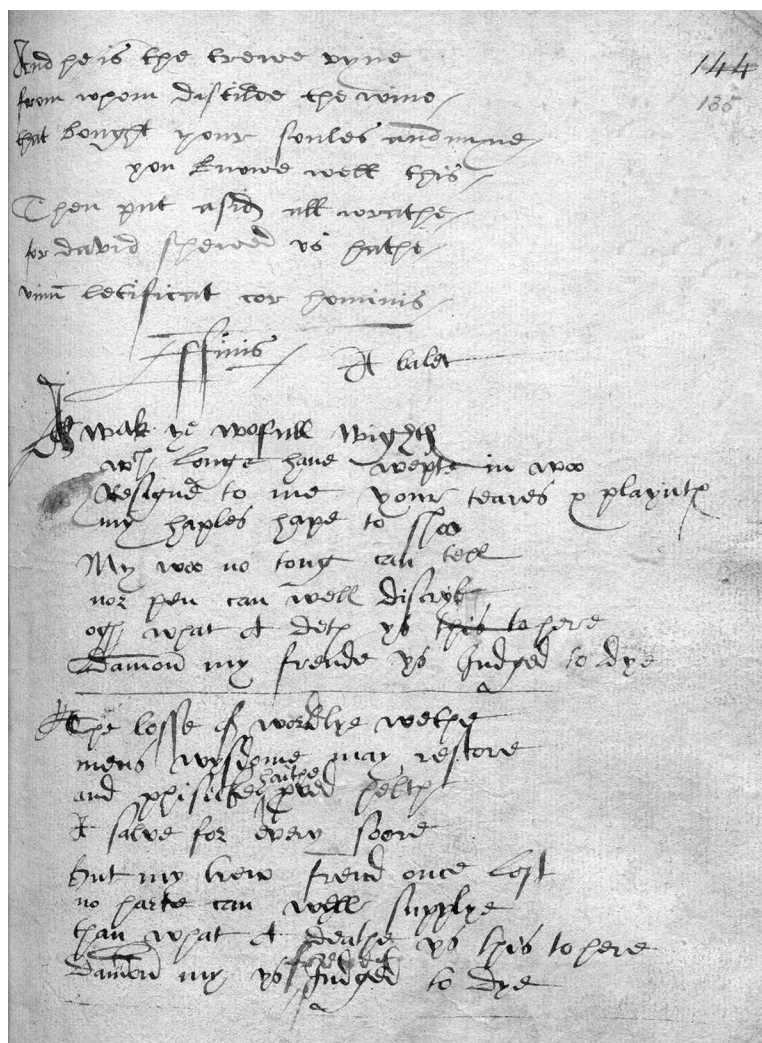 And he is the trewe vyne
144
from whom distilde the wine
185
that bought your soules and myne
you knowe well this
Then put asid all wrathe
for david shewed vs hathe
vinū letificat cor hominis
ffinis A balet
Awak ye wofull wightꝭ
wch longe have wepte in woo
Resigne to me your teares & playntꝭ
my haples hape to shoo
My woo no tong can tell
nor pen can well discrybe
ogh what A deth ys this to here
Damon my frende ys Judged to dye
The losse of worldlye welthe
mens wysdome may restore
and phisicke hathe helth
A salve for every soore
but my trew frend once lost
no harte can well supplye
than what A deathe ys this to here
Damon my frend ys Judged to dye